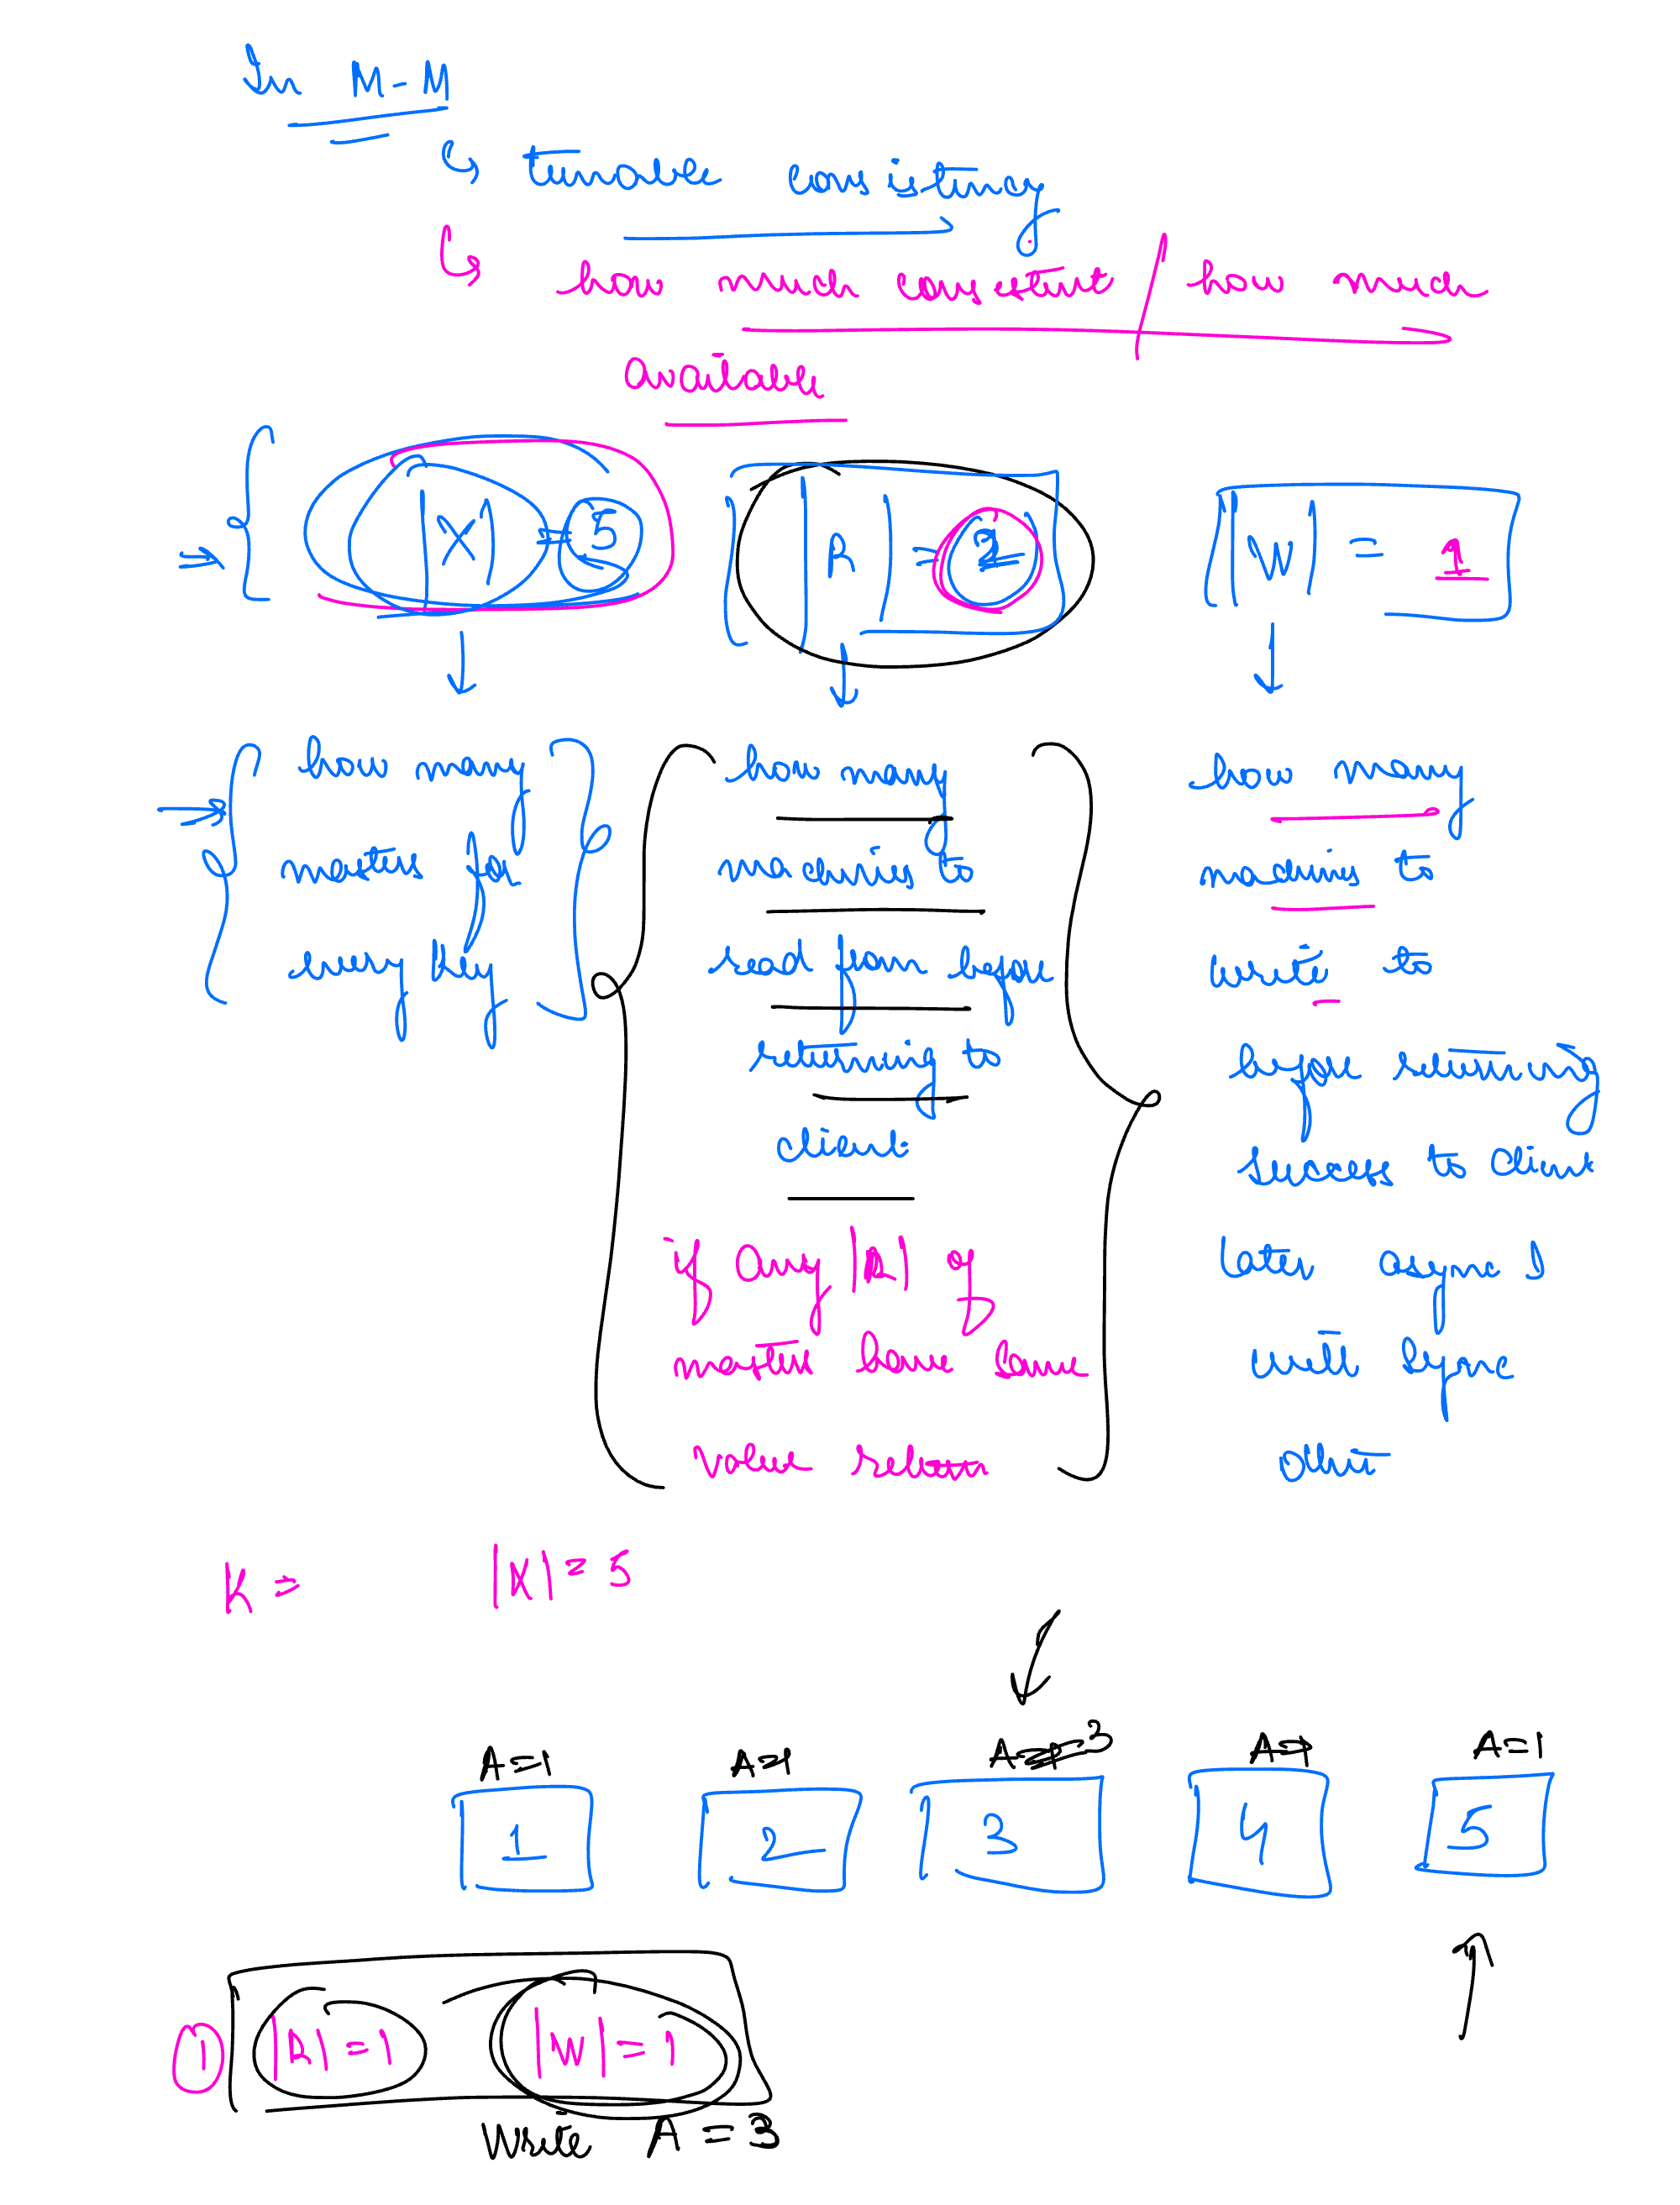 In M-M
↳ tunable consistency
↳ how much consistent / how much
available
|X| = 5
|R| = 2
|W| = 1
how many
masters for
every key
how many
machines to
read from before
returning to
client
if any |R| of
masters have same
value return
how many
machines to
write to
before returning
success to client
later async
will sync
other
K =
|X| = 5
A=1
A=1
A=1 3
A=1
A=1
1
2
3
4
5
① |R| = 1 |W| = 1
Write A = 3